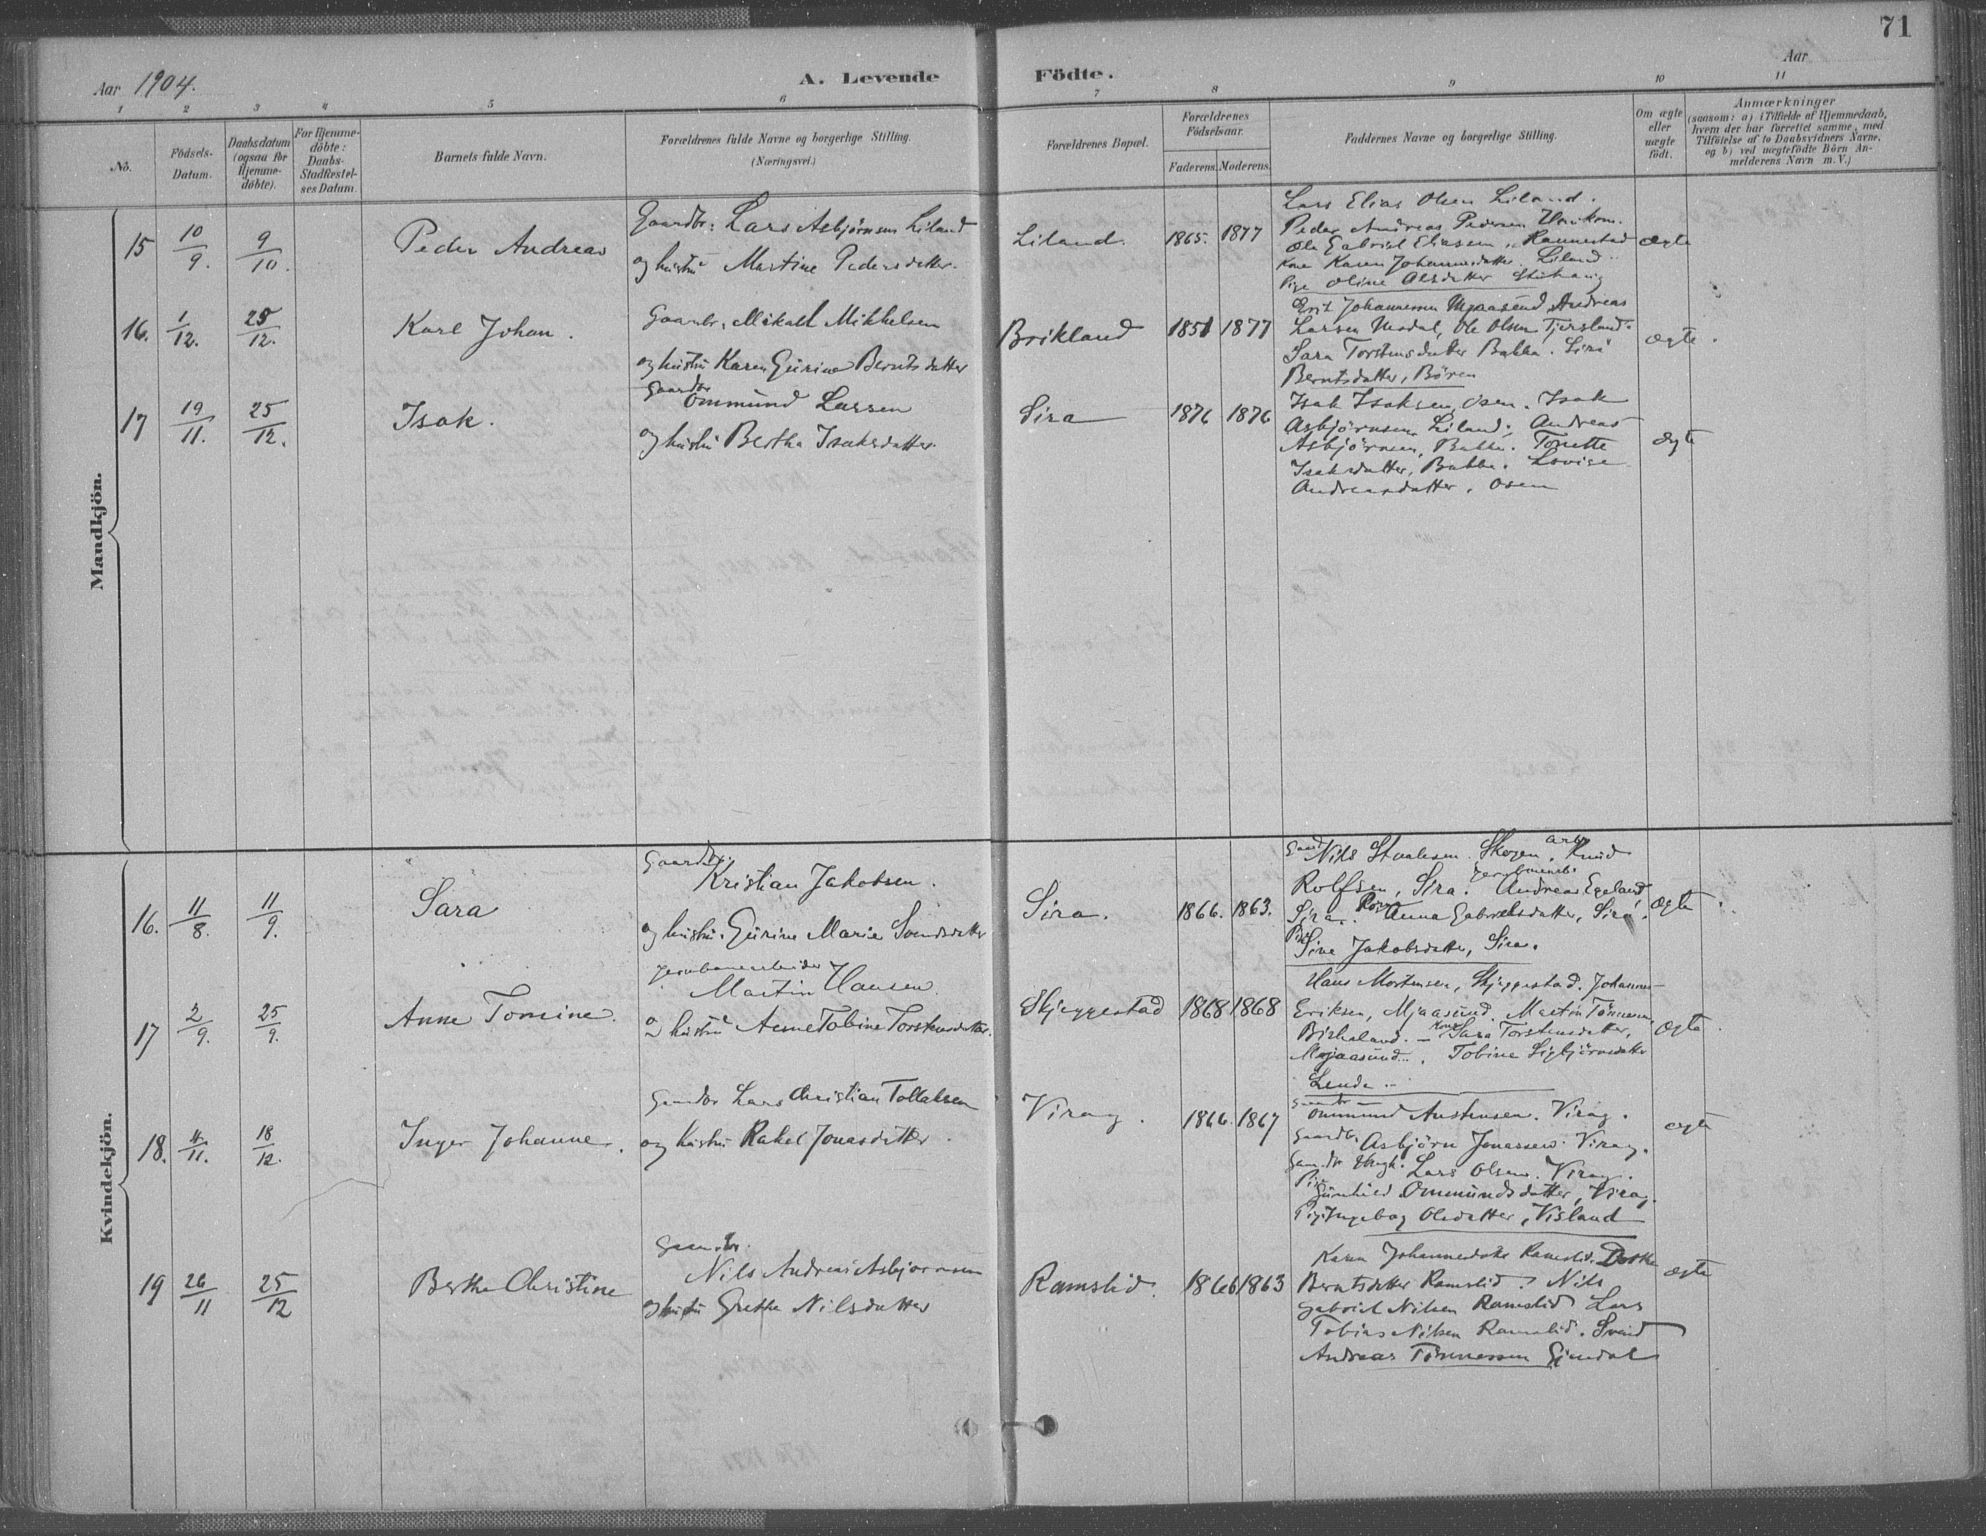 71
Aar 1904.
A. Levende Födte.
Aar
1 2 3 4 5 6 7 8 9 10 11
No.
Födsels-Datum.
Daabsdatum (ogsaa for Hjemme-döbte).
For Hjemme-döbte: Daabs-Stadfæstel-ses Datum.
Barnets fulde Navn.
Forældrenes fulde Navne og borgerlige Stilling.
(Næringsvei.)
Forældrenes Bopæl.
Forældrenes Födselsaar.
Faderens. Moderens.
Faddernes Navne og borgerlige Stilling.
Om ægte eller uægte födt.
Anmærkninger
(saasom: a) i Tilfælde af Hjemmedaab,
hvem der har forrettet samme, med
Tilföielse af to Daabsvidners Navne,
og b) ved uægtefödte Börn An-
melderens Navn m. V.)
Mandkjön.
15 10/9. 9/10. Peder Andreas
Gaardbr: Lars Asbjörnsen Liland
og hustru Martine Pedersdatter.
Liland. 1865. 1877
Lars Elias Olsen Liland.
Peder Andreas Pedersen
Ole Gabriel Eliasen, Rannestad
Kone Karen Johannesdatter. Liland.
Pige Oline Olsdatter
ægte
16. 1/12. 25/12. Karl Johan.
Gaardbr. Mikael Mikkelsen
og hustru Karen Gurine Berntsdatter
Brikland 1851 1877
Erik Johannessen Mjaasund, Andreas
Larsen Mosdal, Ole Olsen Tjersland.
Sara Torstensdatter Bakke. Siri
Berntsdatter, Bören
ægte.
17 19/11. 25/12. Isak.
Gaardbr
Ommund Larsen
og hustru Bertha Isaksdatter.
Sira 1876 1876
Isak Isaksen, Osen. Isak
Asbjörnsen, Liland. Andreas
Asbjörnsen, Bakke. Tonette
Isaksdatter, Bakke. Lovise
Andreasdatter, Osen
ægte
Kvindekjön.
16. 11/8. 11/9. Sara
Gaardbr.
Kristian Jakobsen.
og hustru. Gurine Marie Svendsdatter
Sira. 1866. 1863.
Gaardbr Nils Staalesen Skogen, arb. Knud
Rolfsen, Sira. Andreas Egeland,
Sira. Anna Gabrielsdatter, Sira.
Pige Sine Jakobsdatter, Sira.
Ægte.
17 2/9. 25/9. Anne Tomine.
Jernbanearbeider
Martin Hansen
og hustru Anne Tobine Torstensdatter.
Skjeggestad 1868 1868
Hans Mortensen, Skjeggestad. Johannes
Eriksen, Mjaasund. Martin Tönnesen
Birkeland. – Kone Sara Torstensdatter,
Mjaasund. Tobine Sigbjörnsdatter
Lende.
Ægte.
18. 4/11. 18/12. Inger Johanne.
Gaardbr Lars Christian Tollaksen
og hustru Rakel Jonasdatter.
Virag. 1866. 1867
Gaardbr Ommund Austensen. Virag.
Gaardbr. Asbjörn Jonassen. Virag.
Lars Olsen. Virag.
Pige Gunhild Ommundsdatter, Virag.
Pige Ingeborg Olsdatter, Visland
ægte
19 26/11 25/12 Berthe Christine
Gaardbr.
Nils Andreas Asbjörnsen
og hustru Grethe Nilsdatter
Ramslid. 1866 1863
Karen Johannesdatter Ramslid. Dorthe
Berntsdatter Ramslid. Nils
Gabriel Nilsen Ramslid Lars
Tobias Nilsen Ramslid. Svend
Andreas Tönnessen Gjendal
ægte